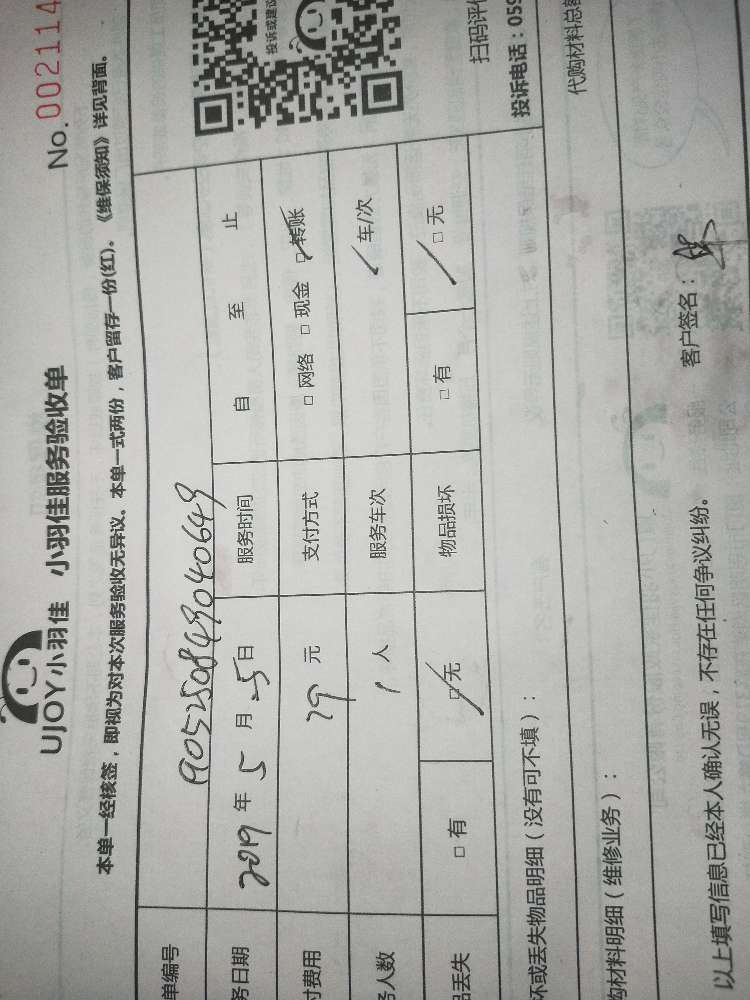 UJOY小羽佳 小羽佳服务验收单
No. 002114
本单一经核签，即视为对本次服务验收无异议。本单一式两份，客户留存一份(红)。《维保须知》详见背面。
投诉或建议
扫码评价
投诉电话：059
单编号 190525084904064 9
务日期 2019 年 5 月 25 日 服务时间 自 至 止
付费用 79 元 支付方式 □ 网络 □ 现金 □ 转账
务人数 1 人 服务车次 / 车/次
品丢失 □ 有 □ 无 物品损坏 □ 有 □ 无
坏或丢失物品明细（没有可不填）：
购材料明细（维修业务）： 代购材料总
以上填写信息已经本人确认无误，不存在任何争议纠纷。 客户签名：